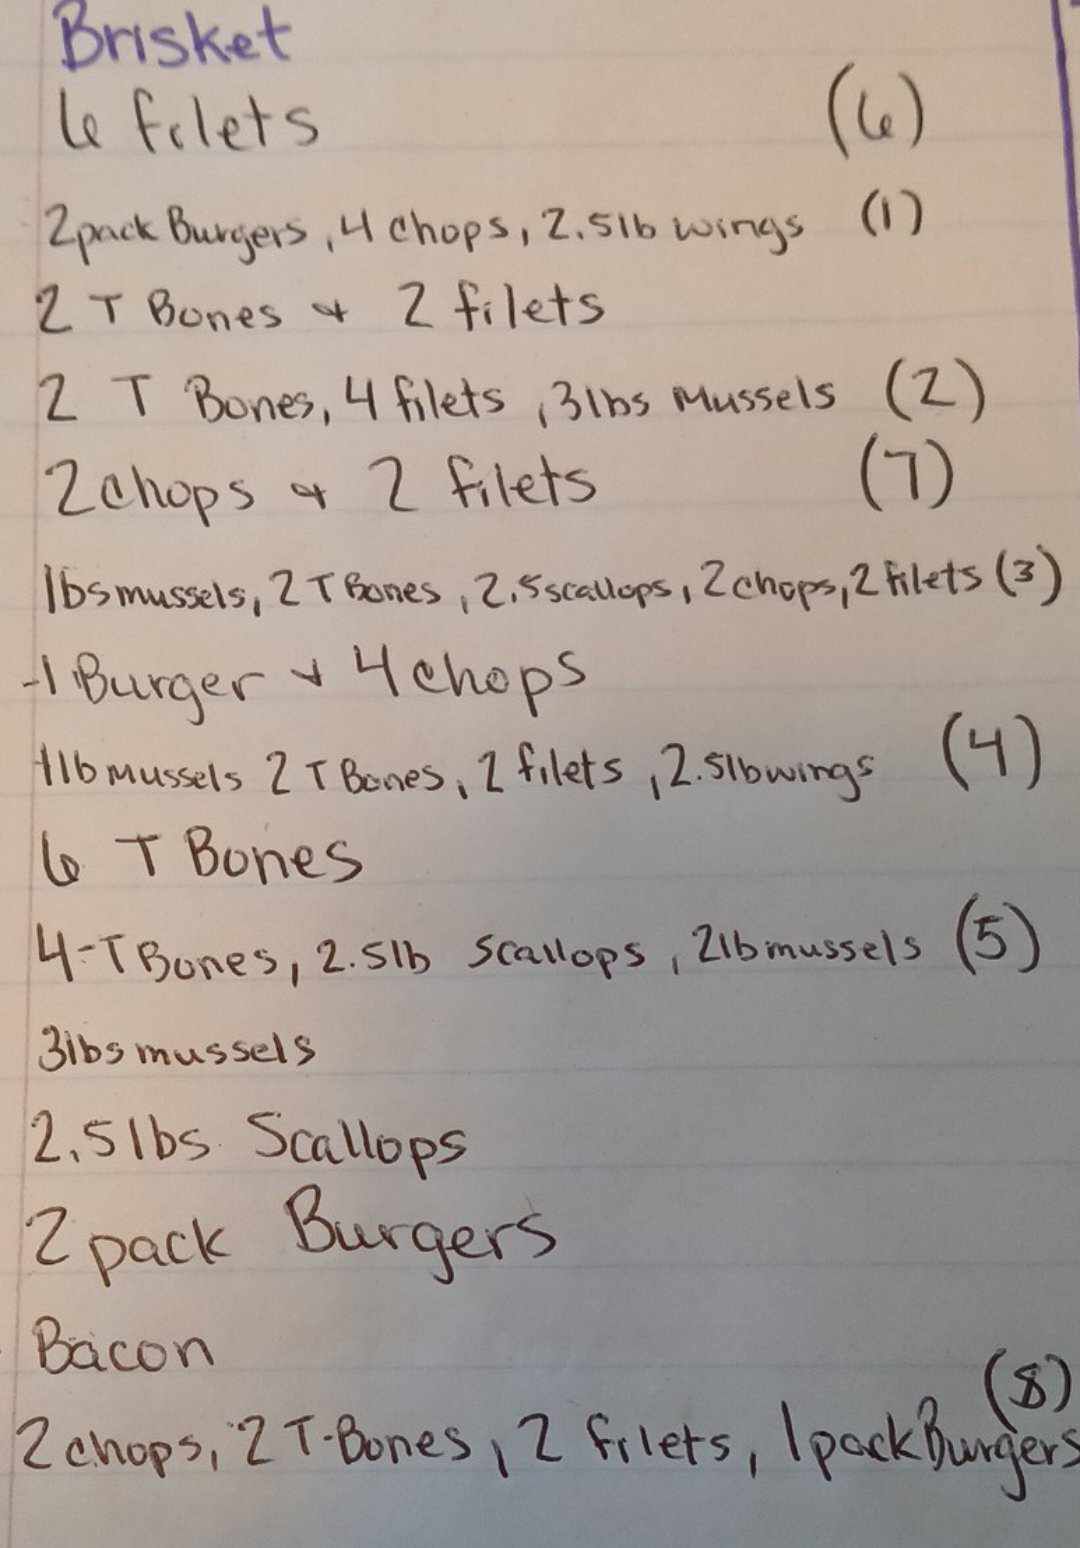 Brisket
6 filets (6)
2pack Burgers, 4 chops, 2.5lb wings (1)
2 T Bones & 2 filets
2 T Bones, 4 filets, 3lbs Mussels (2)
2 chops & 2 filets (7)
1bs mussels, 2 T Bones, 2.5 scallops, 2 chops, 2 filets (3)
-1 Burger & 4 chops
1lb mussels 2 T Bones, 2 filets, 2.5lb wings (4)
6 T Bones
4-T Bones, 2.5lb scallops, 2lb mussels (5)
3lbs mussels
2.5 lbs Scallops
2 pack Burgers
Bacon
(8)
2 chops, 2 T-Bones, 2 filets, 1 pack Burgers